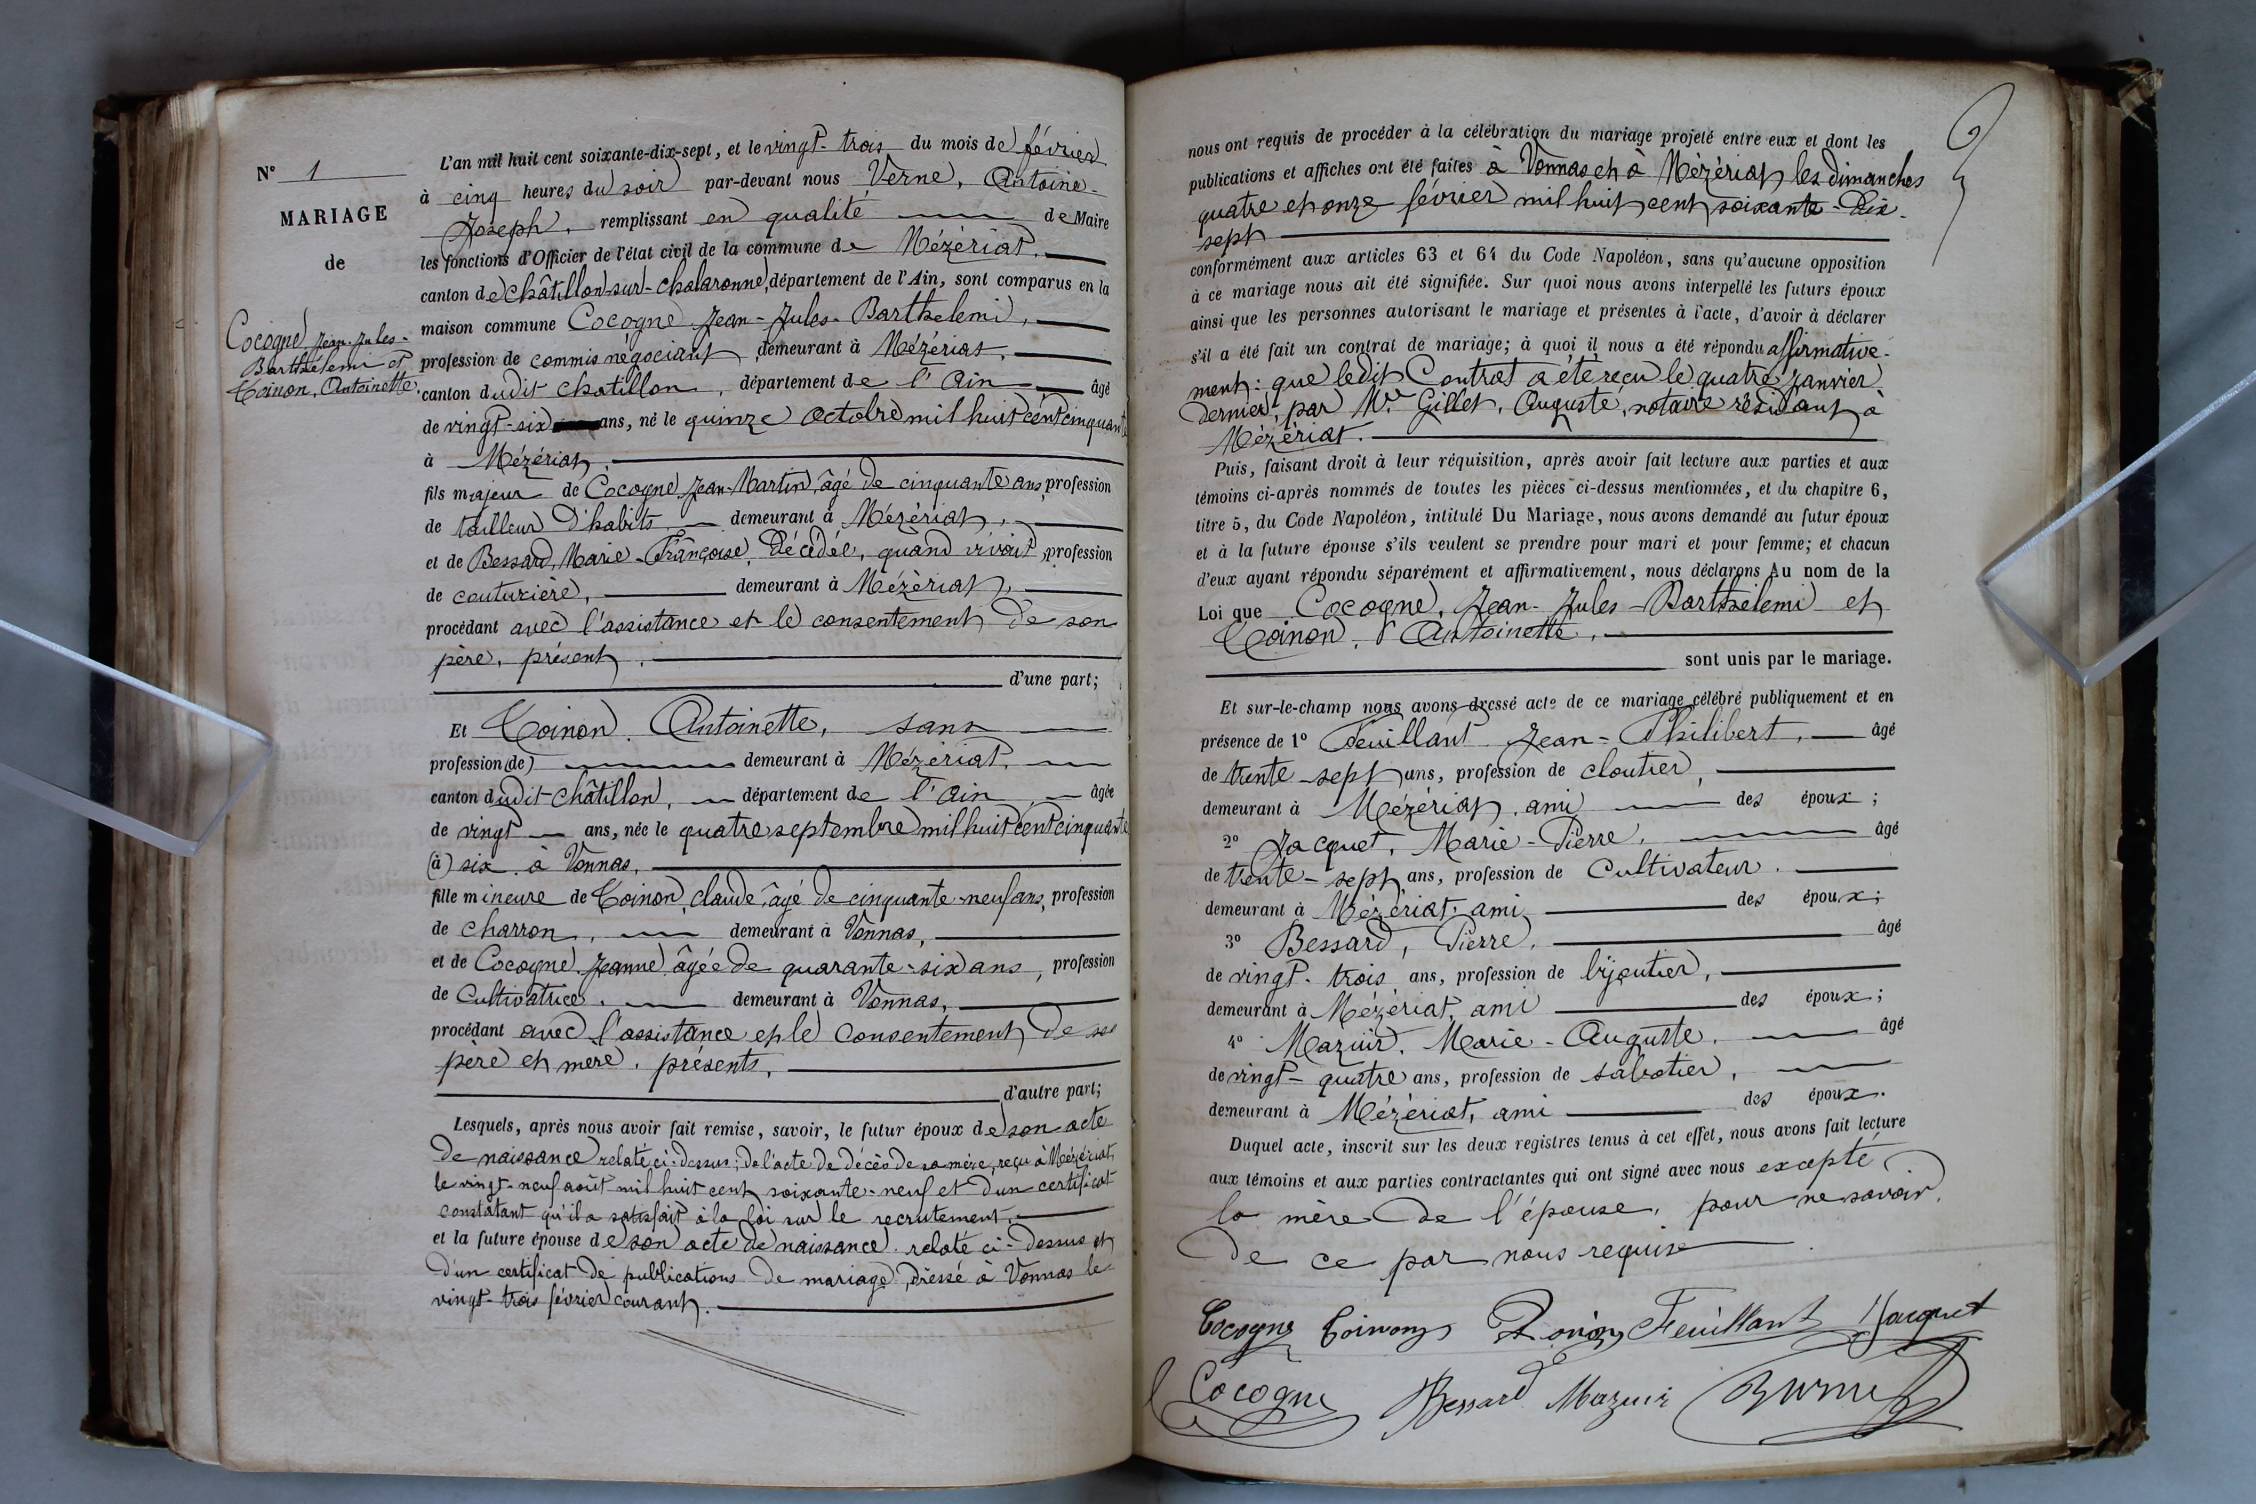 N° 1
MARIAGE
de
Cocogne Jean-Jules-
Barthélemi et
Coinon, Antoinette.
L'an mil huit cent soixante-dix-sept, et le vingt-trois du mois de février
à cinq heures du soir par-devant nous Verne, Antoine-
Joseph, remplissant en qualité de Maire
les fonctions d'Officier de l'état civil de la commune de Mézériat,
canton de Châtillon-sur-Chalaronne, département de l'Ain, sont comparus en la
maison commune Cocogne Jean-Jules-Barthelemi,
profession de commis négociant demeurant à Mézériat,
canton dudit Chatillon, département de l'Ain âgé
de vingt-six ans, né le quinze octobre mil huit cent cinquante
à Mézériat,
fils majeur de Cocogne Jean-Martin, âgé de cinquante ans, profession
de tailleur d'habits, demeurant à Mézériat,
et de Bessard, Marie-Françoise, décédée, quand vivait, profession
de couturière, demeurant à Mézériat,
procédant avec l'assistance et le consentement de son
père, présent,
d'une part;
Et Coinon Antoinette, sans
profession (de) demeurant à Mézériat,
canton dudit Châtillon, département de l'Ain, âgée
de vingt ans, née le quatre septembre mil huit cent cinquante
(à) six à Vonnas,
fille mineure de Coinon, Claude, âgé de cinquante-neuf ans, profession
de charron, demeurant à Vonnas,
et de Cocogne Jeanne, âgée de quarante-six ans, profession
de Cultivatrice, demeurant à Vonnas,
procédant avec l'assistance et le consentement de ses
père et mère, présents,
d'autre part;
Lesquels, après nous avoir fait remise, savoir, le futur époux de son acte
de naissance relaté ci-dessus; de l'acte de décès de sa mère, reçu à Mézériat,
le vingt-neuf août mil huit cent soixante-neuf et d'un certificat
constatant qu'il a satisfait à la loi sur le recrutement,
et la future épouse de son acte de naissance relaté ci-dessus et
d'un certificat de publications de mariage, dressé à Vonnas le
vingt-trois février courant.
nous ont requis de procéder à la célébration du mariage projeté entre eux et dont les
publications et affiches ont été faites à Vonnas et à Mézériat les dimanches
quatre et onze février mil huit cent soixante-dix-
sept
conformément aux articles 63 et 64 du Code Napoléon, sans qu'aucune opposition
à ce mariage nous ait été signifiée. Sur quoi nous avons interpellé les futurs époux
ainsi que les personnes autorisant le mariage et présentes à l'acte, d'avoir à déclarer
s'il a été fait un contrat de mariage; à quoi il nous a été répondu affirmative-
ment: que ledit Contrat a été reçu le quatre janvier
dernier, par Me Gillet, Auguste, notaire résidant à
Mézériat.
Puis, faisant droit à leur réquisition, après avoir fait lecture aux parties et aux
témoins ci-après nommés de toutes les pièces ci-dessus mentionnées, et du chapitre 6,
titre 5, du Code Napoléon, intitulé Du Mariage, nous avons demandé au futur époux
et à la future épouse s'ils veulent se prendre pour mari et pour femme; et chacun
d'eux ayant répondu séparément et affirmativement, nous déclarons Au nom de la
Loi que Cocogne, Jean-Jules-Barthelemi et
Coinon, Antoinette,
sont unis par le mariage.
Et sur-le-champ nous avons dressé acte de ce mariage célébré publiquement et en
présence de 1° Feuillant Jean-Philibert, âgé
de trente-sept ans, profession de cloutier,
demeurant à Mézériat, ami des époux;
2° Jacquet, Marie-Pierre, âgé
de trente-sept ans, profession de Cultivateur,
demeurant à Mézériat, ami des époux;
3° Bessard, Pierre, âgé
de vingt-trois ans, profession de bijoutier,
demeurant à Mézériat, ami des époux;
4° Mazuir, Marie-Auguste, âgé
de vingt-quatre ans, profession de sabotier,
demeurant à Mézériat, ami des époux.
Duquel acte, inscrit sur les deux registres tenus à cet effet, nous avons fait lecture
aux témoins et aux parties contractantes qui ont signé avec nous excepté
la mère de l'épouse, pour ne savoir,
de ce par nous requise
Cocogne Coinon Feuillant Jacquet
Cocogne Bessard Mazuir